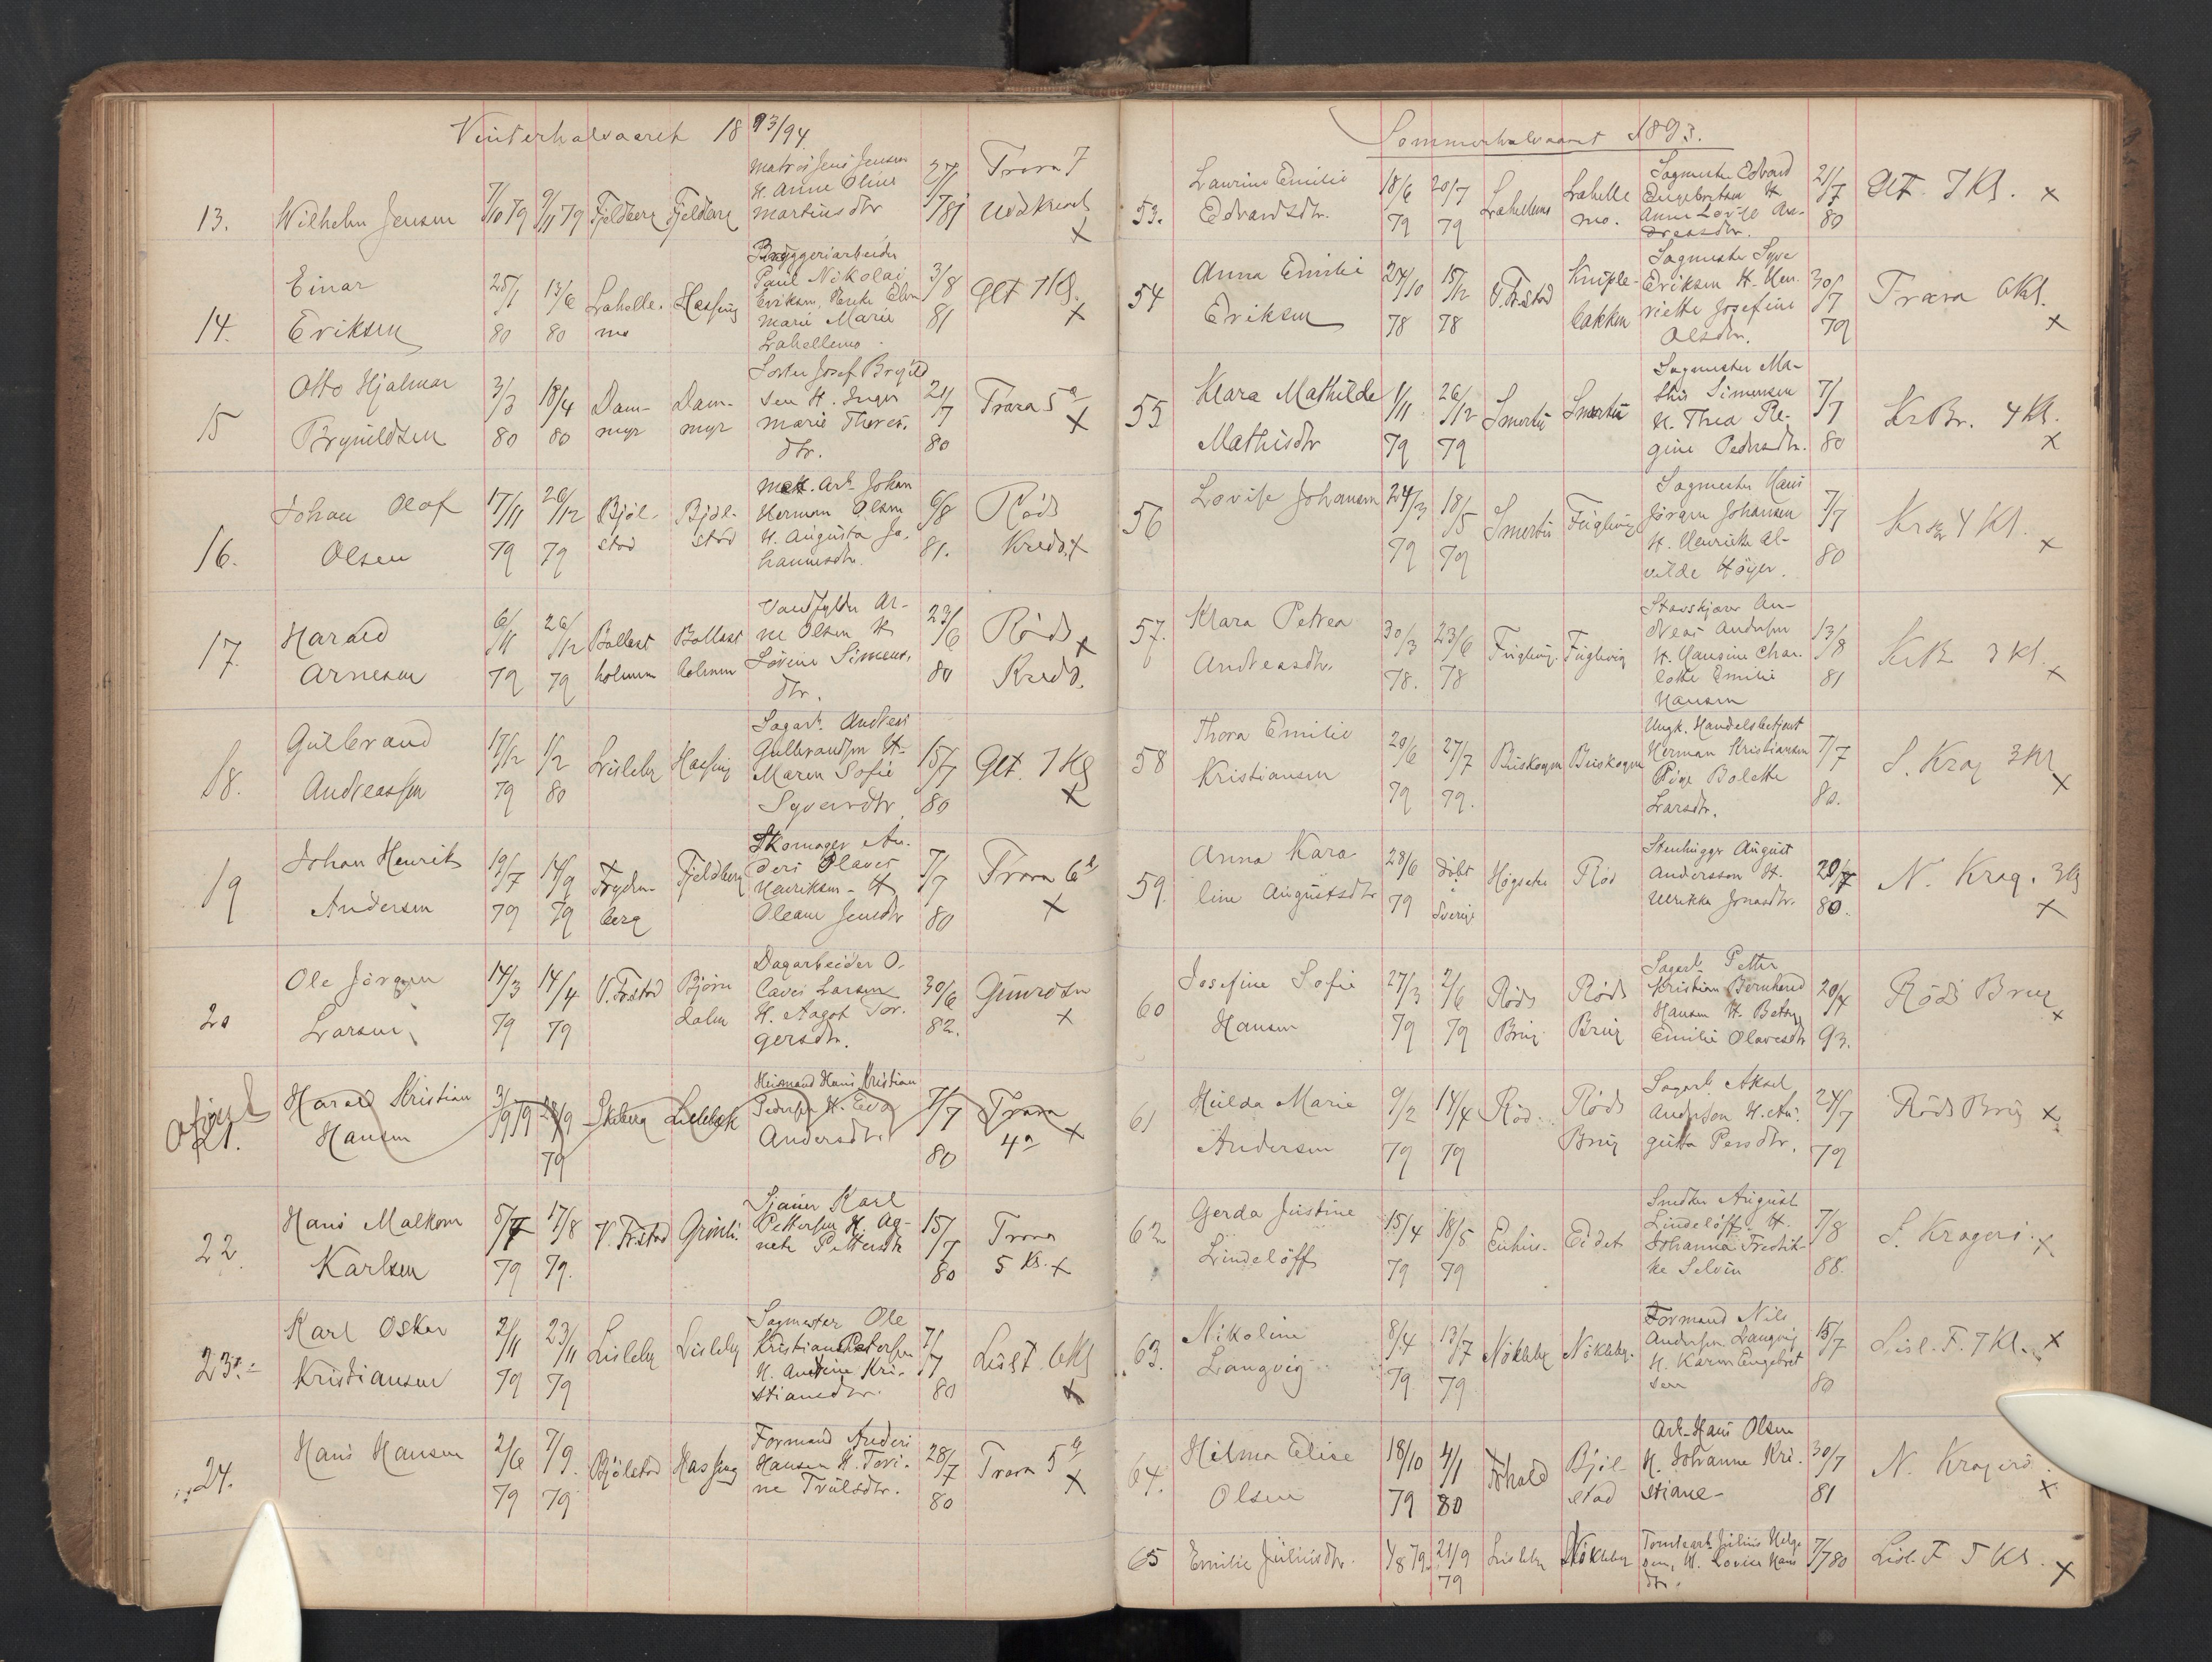 Vinterhalvaaret 1893/94.
13. Wilhelm Jensen 7/10 79 9/11 79 Fjeldberg Fjeldberg
Matros Jens Jensen
H. Anne Oline
Martinsdtr
27/7 81
Trara 7
x
14. Einar
Eriksen
25/1 80 13/6 80
Lahelle-
mo
Bryggeriarbeider
Paul Nikolai
Eriksen,
Marie Marie
Lahellemo
3/8 81
Glt 7 Kl.
x
15 Otto Hjalmar
Brynildsen
3/3 80 18/4 80
Dam-
myr
Dam-
myr
Josef Brynild
sen H. Inger
Marie Thores.
dtr.
21/7 80
Trara 5a
x
16. Johan Olof
Olsen
17/11 79 26/12 79
Bjøl-
stad
Bjøl-
stad
Mek. Arb. Johan
Herman Olsen
H. Augusta Jo-
hannesdtr.
6/8 81.
Røds
Kreds. x
17. Harald
Arnesen
6/11 79 26/12 79
Ballast
holmen
Ballast
holmen
Ar-
ne Olsen H
Lovine Simens.
dtr.
23/6 80
Røds x
Kreds.
18. Gulbrand
Andreassen
17/12 79 1/2 80
Lisleby
Sagarb. Andreas
Gulbrandsen H.
Maren Sofie
Syversdtr.
15/7 80
Glt. 7 Kl
x
19 Johan Henrik
Andersen
19/7 79 14/9 79
Trychn-
berg
Fjeldberg
Skomager An-
ders Olaves
Henriksen - H
Oleane Jensdtr
7/7 80
Trara 6a
x
20 Ole Jørgen
Larsen
14/3 79 14/4 79
V. Fr.stad
Bjørn
dalen
Dagarbeider O-
laves Larsen
H. Aagot Tor-
gersdtr.
30/6 82.
Gunrøsen
x
21. Harald Kristian
Hansen
3/9 79 28/9 79
Skeberg Lillebæk
Hans Kristian
Pedersen H. Eva
Andersdtr.
7/7 80
Trara
4a x
22. Hans Malkom
Karlsen
5/7 79 17/8 79.
V. Fr.stad Grønli.
Sjauer Karl
Pettersen H. Ag-
nete Pettersdtr
15/7 80
Trara
5 Kl. x
23. Karl Oskar
Kristiansen
2/11 79 23/11 79
Lisleby Lisleby
Sagmester Ole
Kristian Petersen
H. Andrine Kri-
stiansdtr.
7/7 80
Lislt. 6 Kl
x
24. Hans Hansen
2/6 79 7/9. 79
Bjølstad
Formand Anders
Hansen H. Tori-
ne Truelsdtr.
28/7 80
Trara 5a
x
Sommerhalvaaret 1893.
53. Laurine Emilie
Edvardsdtr.
18/6 79 20/7 79
Lahellemo
Lahelle
mo.
Sagmester Edvard
Engebretsen H
Anne Lovise An-
dreasdtr.
21/7 80
Glt. 7 Kl. x
54 Anna Emilie
Eriksen
24/10 78 15/12 78
V. Fr.stad
Kniple-
bakken
Sagmester Syver
Eriksen H. Hen-
riette Josefine
Olsdtr.
30/7 79
Trara 6 Kl.
x
55 Klara Mathilde
Mathisdtr
1/11 79 26/12 79
Smertu Smertu
Sagmester Ma-
this Simensen
H. Thea Re-
gine Pedersdtr.
7/7 80
Kr Br. 4 Kl.
x
56 Lovise Johansen
24/3 79 18/5 79
Smertu Fuglevig
Sagmester Hans
Jørgen Johansen
H. Henriette Al-
vilde Høyer.
7/7 80
4 Kl.
x
57. Klara Petrea
Andreasdtr.
30/3 78. 23/6 78
Fuglevig. Fuglevig
Stavskjærer An-
dreas Andersen
H. Hansine Char-
lotte Emilie
Hansen
13/8 81
3 Kl.
x
58 Thora Emilie
Kristiansen
20/6 79 27/7 79.
Buskogen Buskogen
Ungk. Handelsbetjent
Herman Kristiansen
Pige Bolette
Larsdtr.
7/7 80.
S. Krag 3 Kl
x
59. Anna Karo-
line Augustsdtr
28/6 79
Døbt
i
Sverige
Høgsete Rød
Stenhugger August
Andersson H.
Ulrikka Jonasdtr.
20/7 80.
N. Krag. 3 Kl
x
60 Josefine Sofie
Hansen
27/3 79 2/6 79
Røds
Brug
Røds
Brug
Sagarb. Petter
Kristian Bernhard
Hansen H. Betsy
Emilie Olavesdtr
20/4 93.
Røds Brug
x
61 Hulda Marie
Andersen
9/2 79 14/4 79
Rød.
Røds
Brug
Sagarb. Aksel
Andersen H. Au-
gusta Persdtr.
24/7 79
Røds Brug x
62 Gerda Justine
Lindeløff
15/4 79 18/5 79
Enhus. Eidet
Smeden August
Lindeløff H.
Johanna Fredrik-
ke Selvin
7/8 88.
S. Kragerø. x
63. Nikoline
Langvig
8/4 79 13/7 79
Nøkleby Nøkleby.
Formand Nils
Andersen Langvig
H. Karen Engebret
sen
15/7 80
Lisl. F. 7 Kl. x
64. Hilma Elise
Olsen
18/10 79 4/1 80
Bjøl-
stad
Arb. Hans Olsen
H. Johanne Kri-
stiane-
30/7 81
N. Kragerø.
x
65 Emilie Juliusdtr.
4/8 79 21/9 79
Lisleby Nøkleby
Tomtearb. Julius Helge
sen, H. Lovise Hans
dtr.
7/7 80
Lisl. F 5 Kl. x